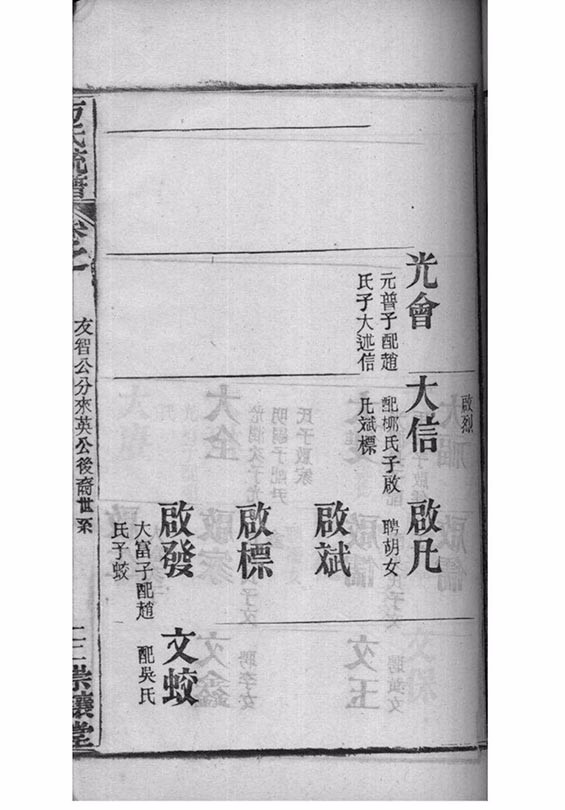 啟烈
光會
元善子配趙
氏子大述信
大信
配鄉氏子啟
凡斌標
啟凡
聘胡女
啟斌
啟標
啟發
大富子配趙
氏子蛟
文蛟
配吳氏
氏統譜
卷之一
友智公分來英公後裔世系